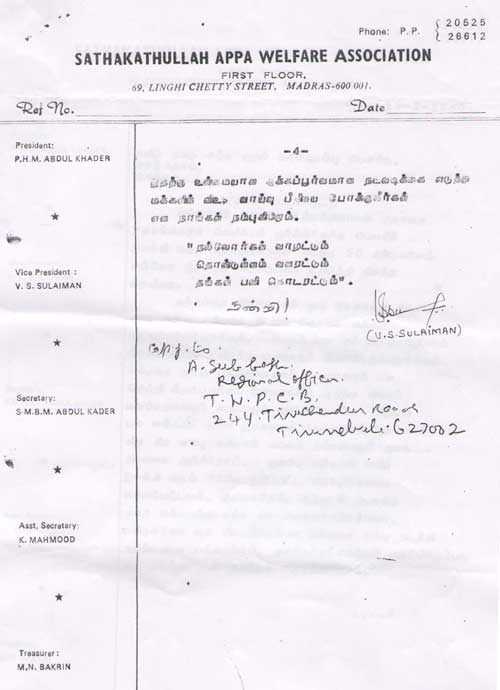 Phone: P. P. { 20525
{ 26612
SATHAKATHULLAH APPA WELFARE ASSOCIATION
FIRST FLOOR,
69, LINGHI CHETTY STREET, MADRAS-600 001.
Ref No.
Date
President:
P.H.M. ABDUL KHADER
Vice President :
V. S. SULAIMAN
Secretary:
S-M.B.M. ABDUL KADER
Asst, Secretary:
K. MAHMOOD
Treasurer :
M.N. BAKRIN
-4-
உண்மையான ஆக்கப்பூர்வமான நடவடிக்கை எடுத்து
மக்களின் வாயு பீதியை போக்குவீர்கள்
என நாங்கள் நம்புகிறோம்.
"நல்லோர்கள் வாழட்டும்
தொண்டுள்ளம் வளரட்டும்
தங்கள் பணி தொடரட்டும்".
நன்றி!
(V.S.SULAIMAN)
to
A.
Regional Officer.
T. N. P. C. B.
244, Tiruchendur Road
Tirunelveli. 627002